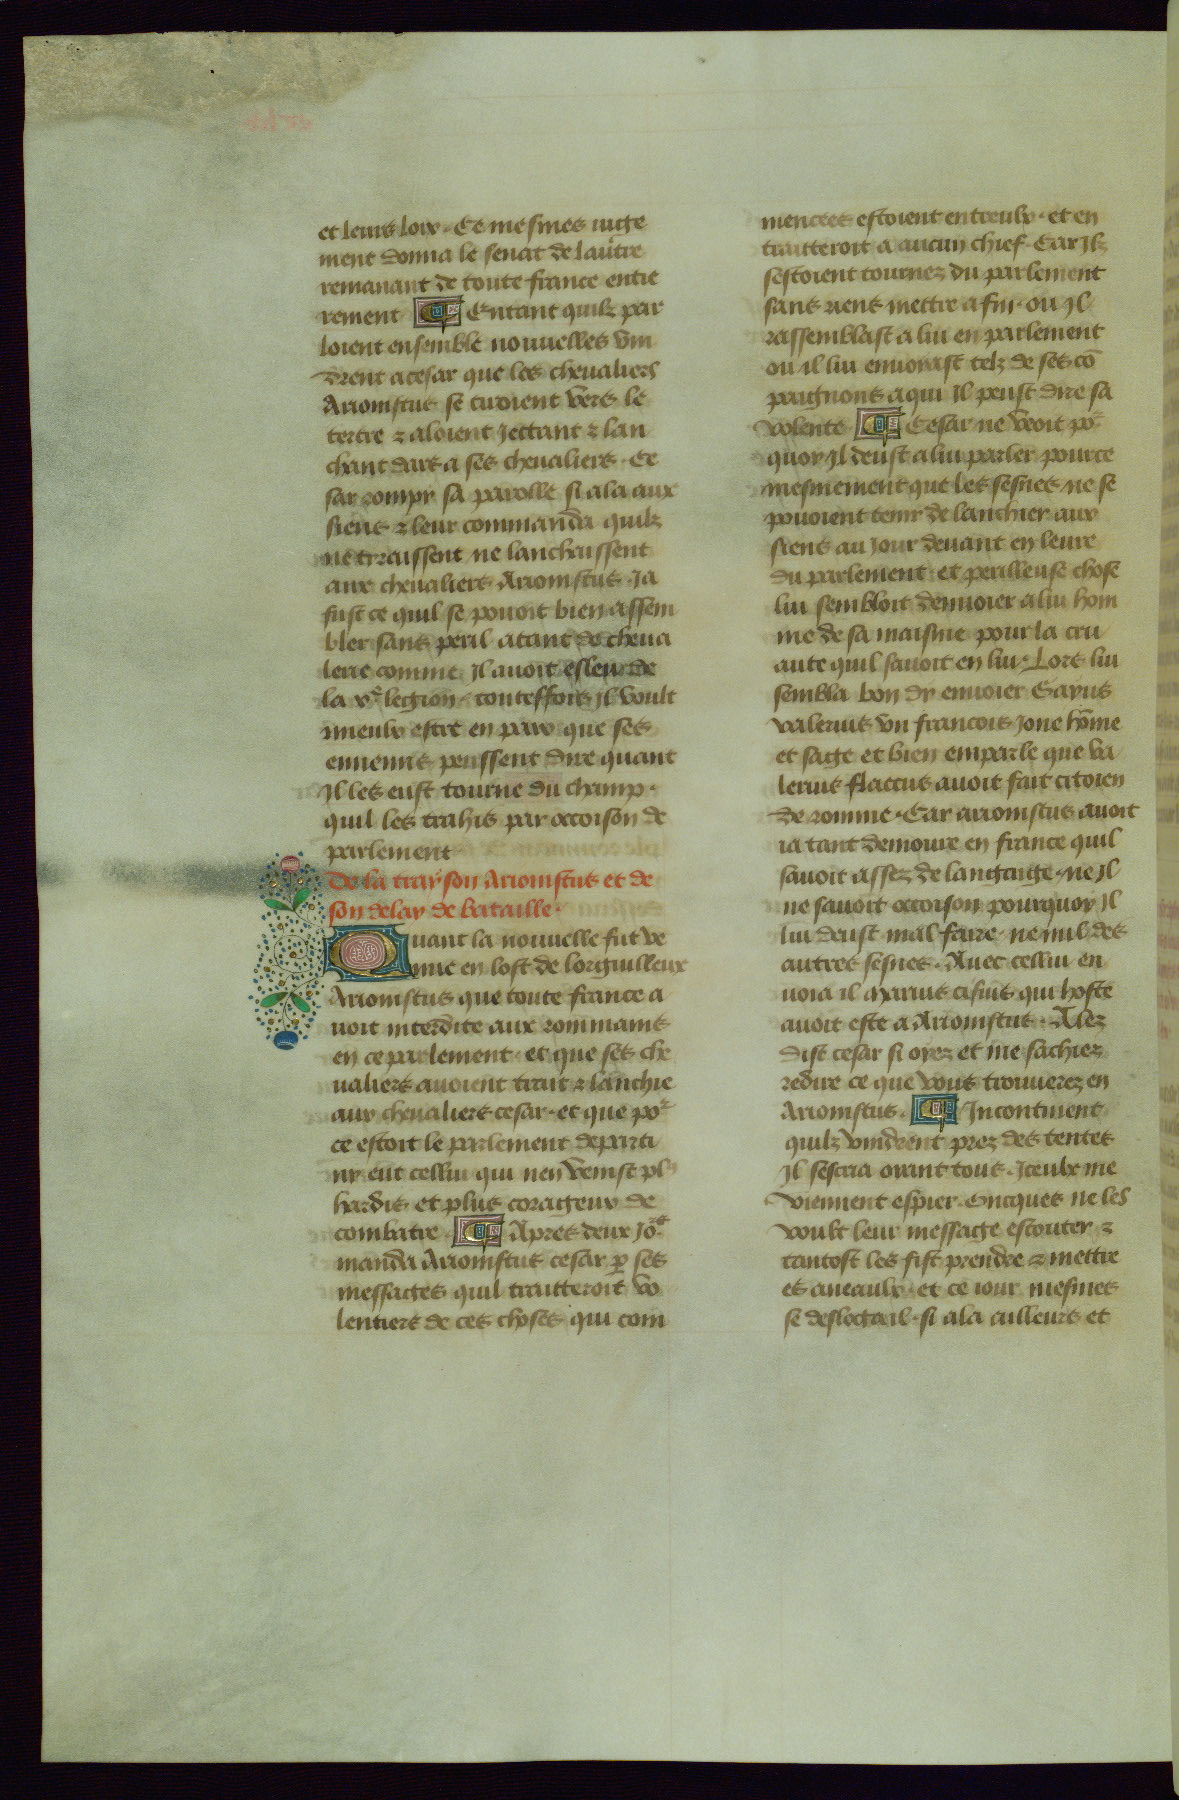 et leurs loix. Ce mesmes iuge
ment donna le senat de lautre
remanant de toute france entie
rement En tant quilz par
loient ensemble nouuelles vin
drent a cesar que les cheualiers
Ariouistus se tiroient vers le
tertre & aloient iettant & lan
chant dars a ses cheualiers. Ce
sar rompy sa parolle si ala aux
siens & leur commanda quilz
ne traissent ne lanchaissent
aux cheualiers Ariouistus. Ja
fust ce quil se pouoit bien assem
bler sans peril atant de cheua
lerie comme Il auoit esleu de
la xe legion. touteffois Il voult
mieulx estre en paix que ses
ennemis peussent dire quant
Il les eust tourne du champ.
quil les trahis par occoison de
parlement
De la trayson Ariouistus et de
son delay de bataille.
Quant la nouuelle fut ve
nue en lost de lorguilleux
Ariouistus que toute france a
uoit interdite aux rommains
en ce parlement. et que ses che
ualiers auoient trait & lanchie
aux cheualiers cesar. et que por
ce estoit le parlement departi
ny eut cellui qui nen venist pl9
hardis et plus corageux de
combatre. Apres deux Jors
manda Ariouistus cesar p ses
messages quil traitteroit vo
lentiers de ces choses qui com
mencees estoient entreulx. et en
traitteroit a aucun chief. Car Ilz
sestoient tournez du parlement
sans riens mettre a fin. ou Il
rassemblast a lui en parlement
ou il lui enuoiast telz de ses cō
paignons a qui Il peust dire sa
volente Cesar ne veoit por
quoy Il deust a lui parler pource
mesmement que les sesnes ne se
pouoient tenir de lanchier aux
siens au iour deuant en leure
du parlement. et perilleuse chose
lui sembloit denuoier a lui hom
me de sa maisnie pour la cru
aute quil sauoit en lui. Lors lui
sembla bon dy enuoier Gayus
valerius vn francois Jone hōme
et sage et bien emparle que va
lerius flaccus auoit fait citoien
de romme. Car ariouistus auoit
ia tant demoure en france quil
sauoit assez de langaige. ne Il
ne sauoit occoison pourquoy Il
lui deust mal faire. ne nulz des
autres sesnes. Auec cellui en
uoia il Marius cisuis qui hoste
auoit este a Ariouistus. Alez
dist cesar si oyez et me sachiez
redire ce que vous trouuerez en
Ariouistus. Incontinent
quilz vindrent prez des tentes
Il sescria oyant tous. Iceulx me
viennent espier. Oncques ne les
voult leur message escouter &
tantost les fist prendre & mettre
es aneaulx. et ce iour mesmes
se deslogail. si ala ailleurs et